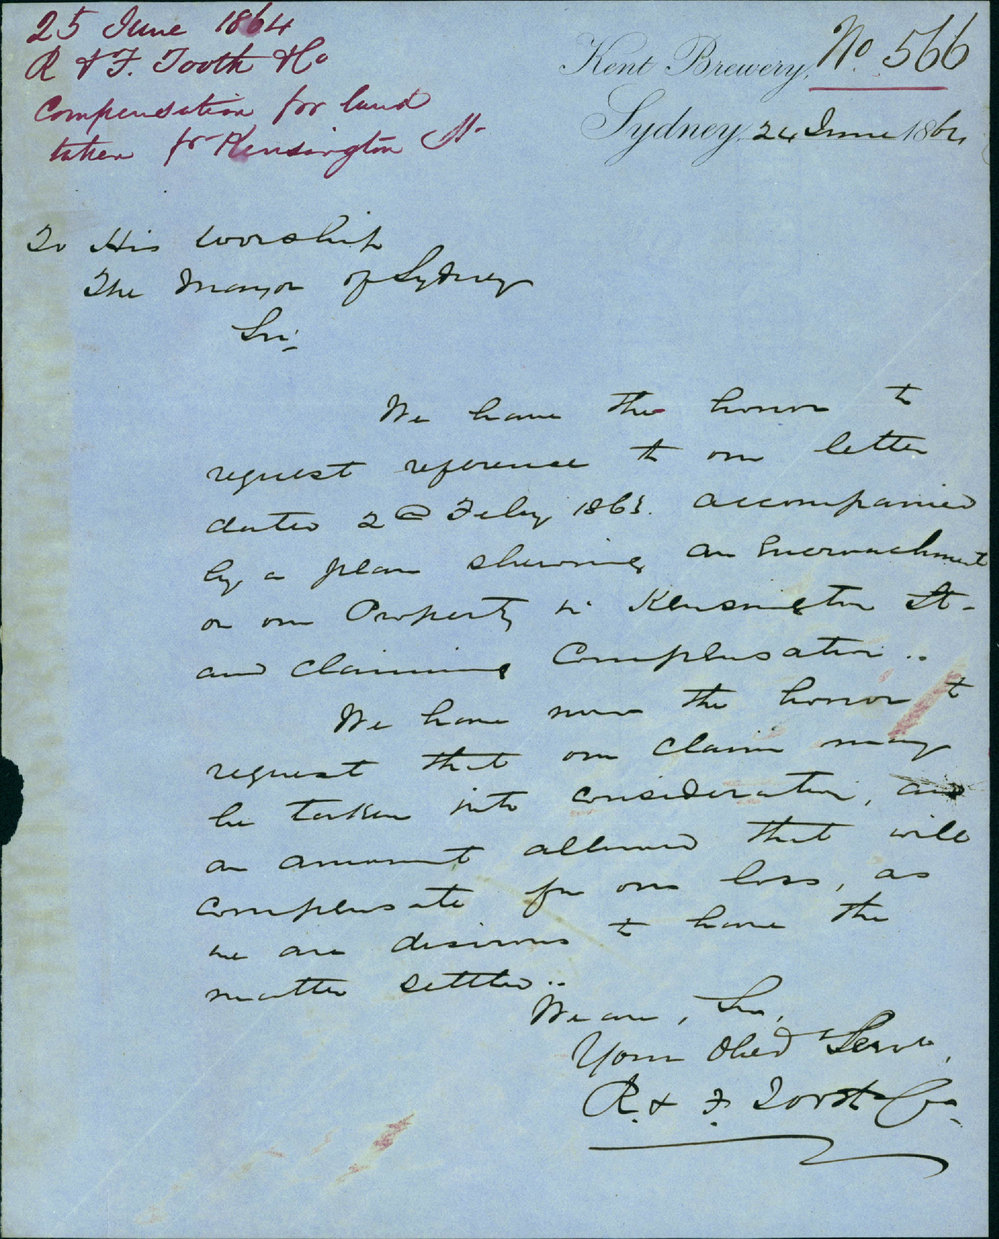 25 June 1864
R & F. Tooth & Co
Compensation for land
taken for Kensington St
No. 566
Kent Brewery,
Sydney, 24 June 1864
To His Worship
The Mayor of Sydney
Sir,
We have the honor to
request reference to our letter
dated 2 Feby 1863. accompanied
by a plan shewing an Encroachment
on our Property in Kensington St.
and claiming Compensation..
We have now the honor to
request that our claim may
be taken into consideration, and
an amount allowed that will
compensate for our loss, as
we are desirous to have the
matter settled..
We are, Sir,
Your Obed Servts,
R. & F. Tooth & Co.